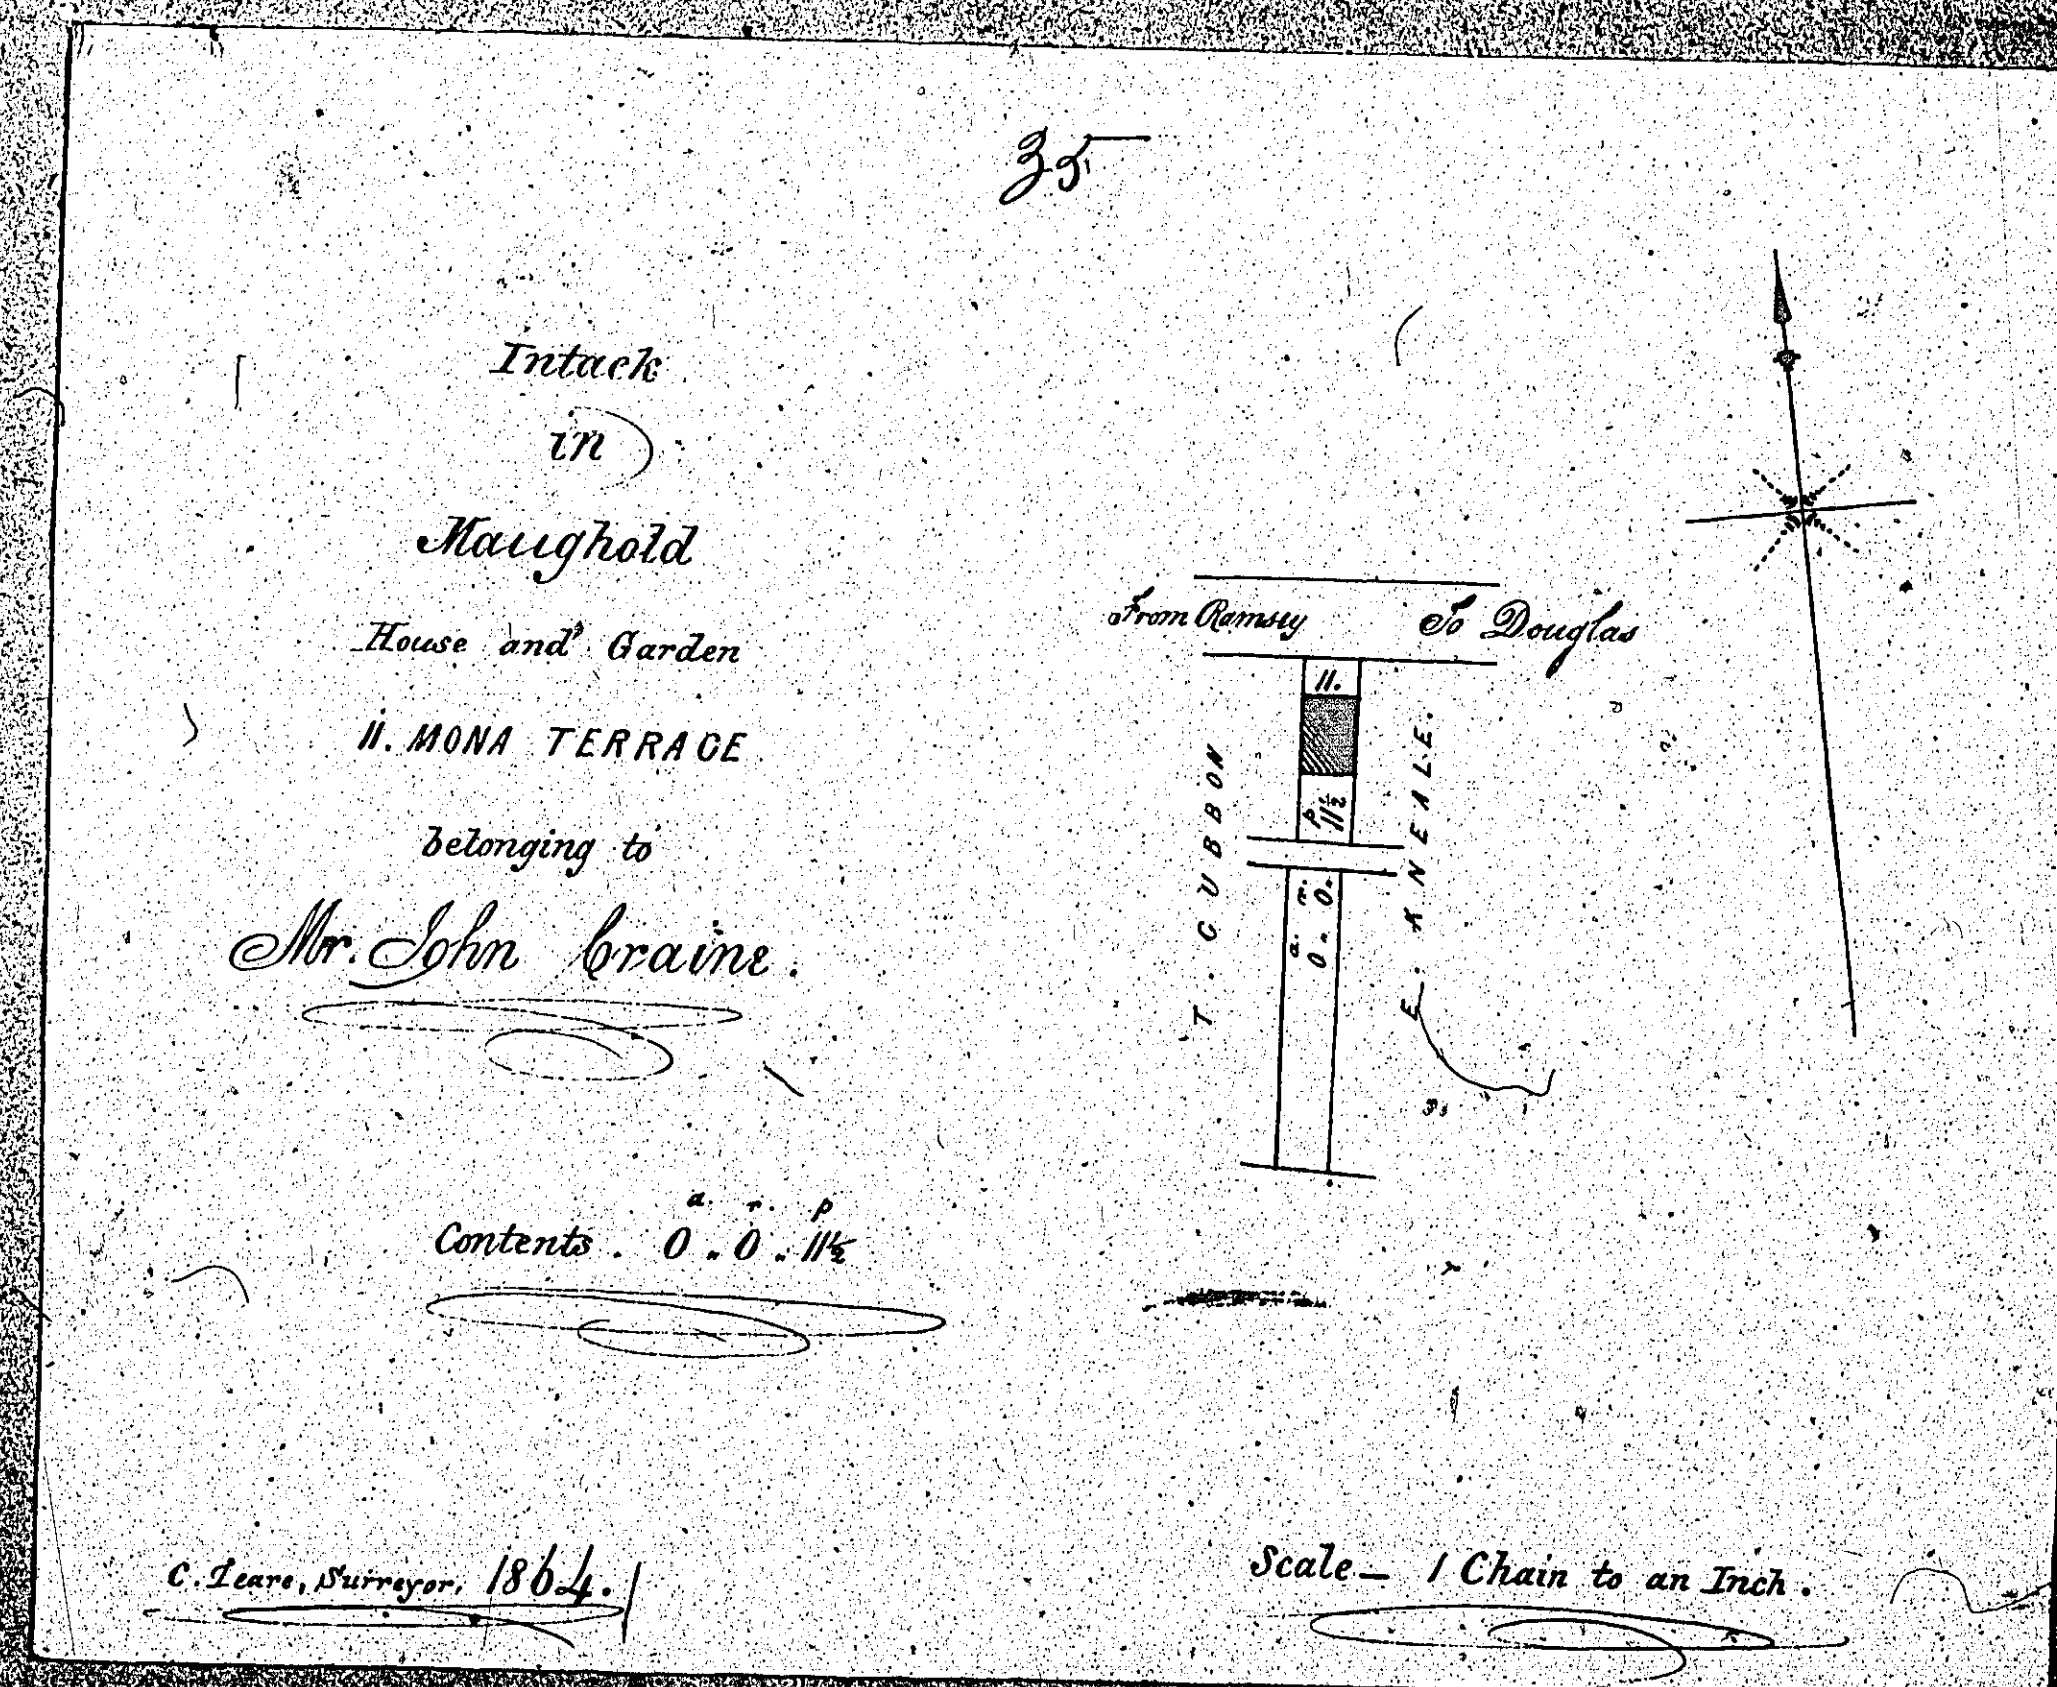 35
Intack
in
Maughold
House and Garden
11. MONA TERRACE
belonging to
Mr. John Craine.
a. r. p
Contents. 0.. 0.. 11½
C. Teare, Surveyor, 1864.
From Ramsey To Douglas
11.
T. CUBBON
E. KNEALE.
a. r. p
0.. 0. 11½
Scale — 1 Chain to an Inch.